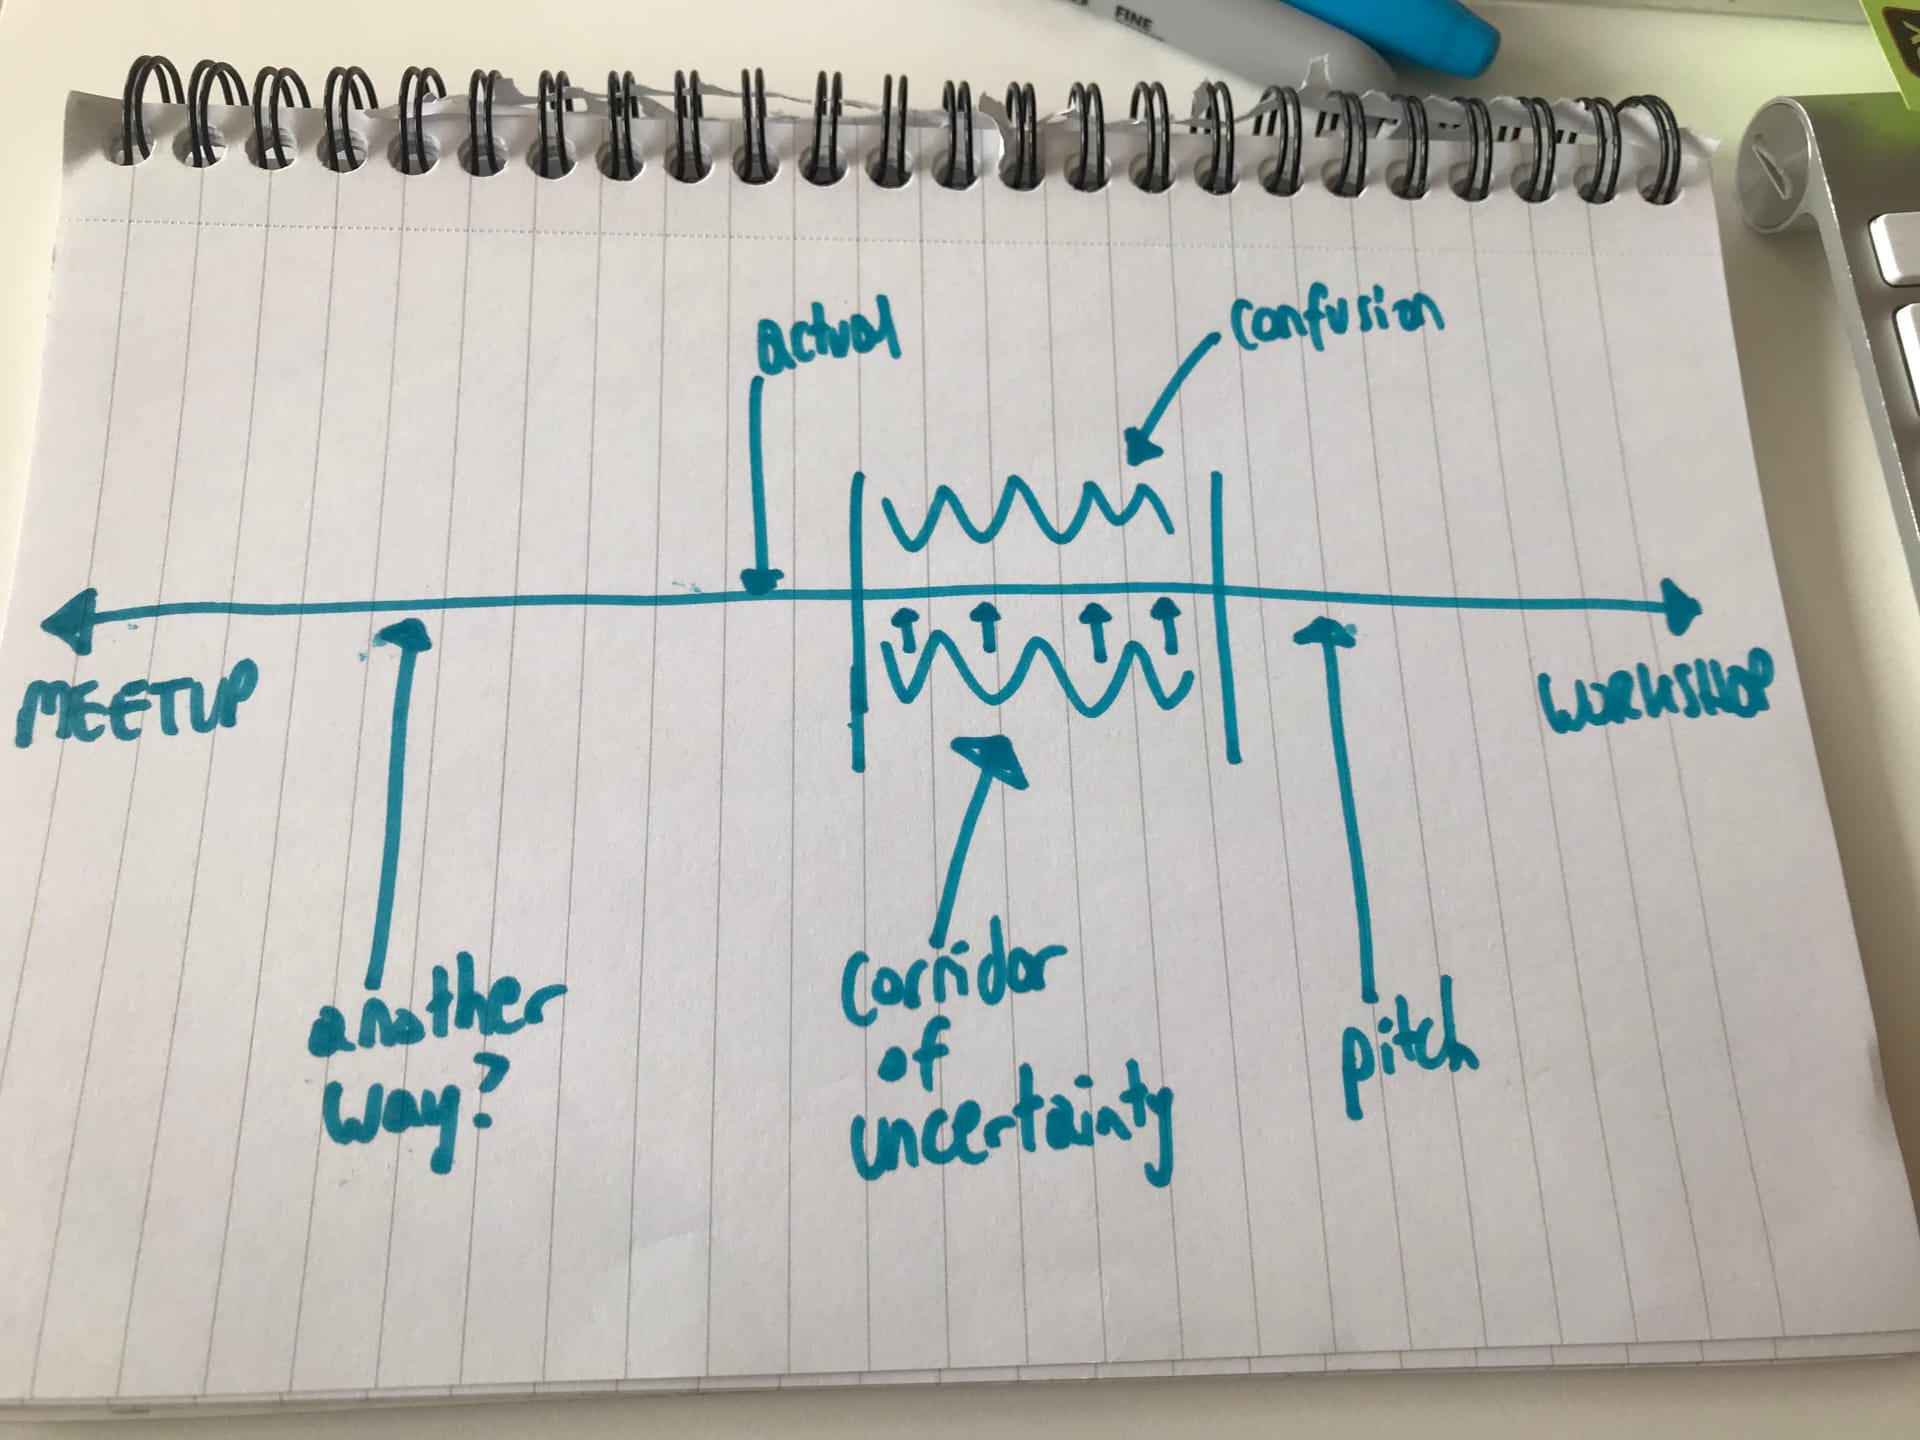 FINE
actual
confusion
MEETUP
WORKSHOP
another
way?
corridor
of
uncertainty
pitch